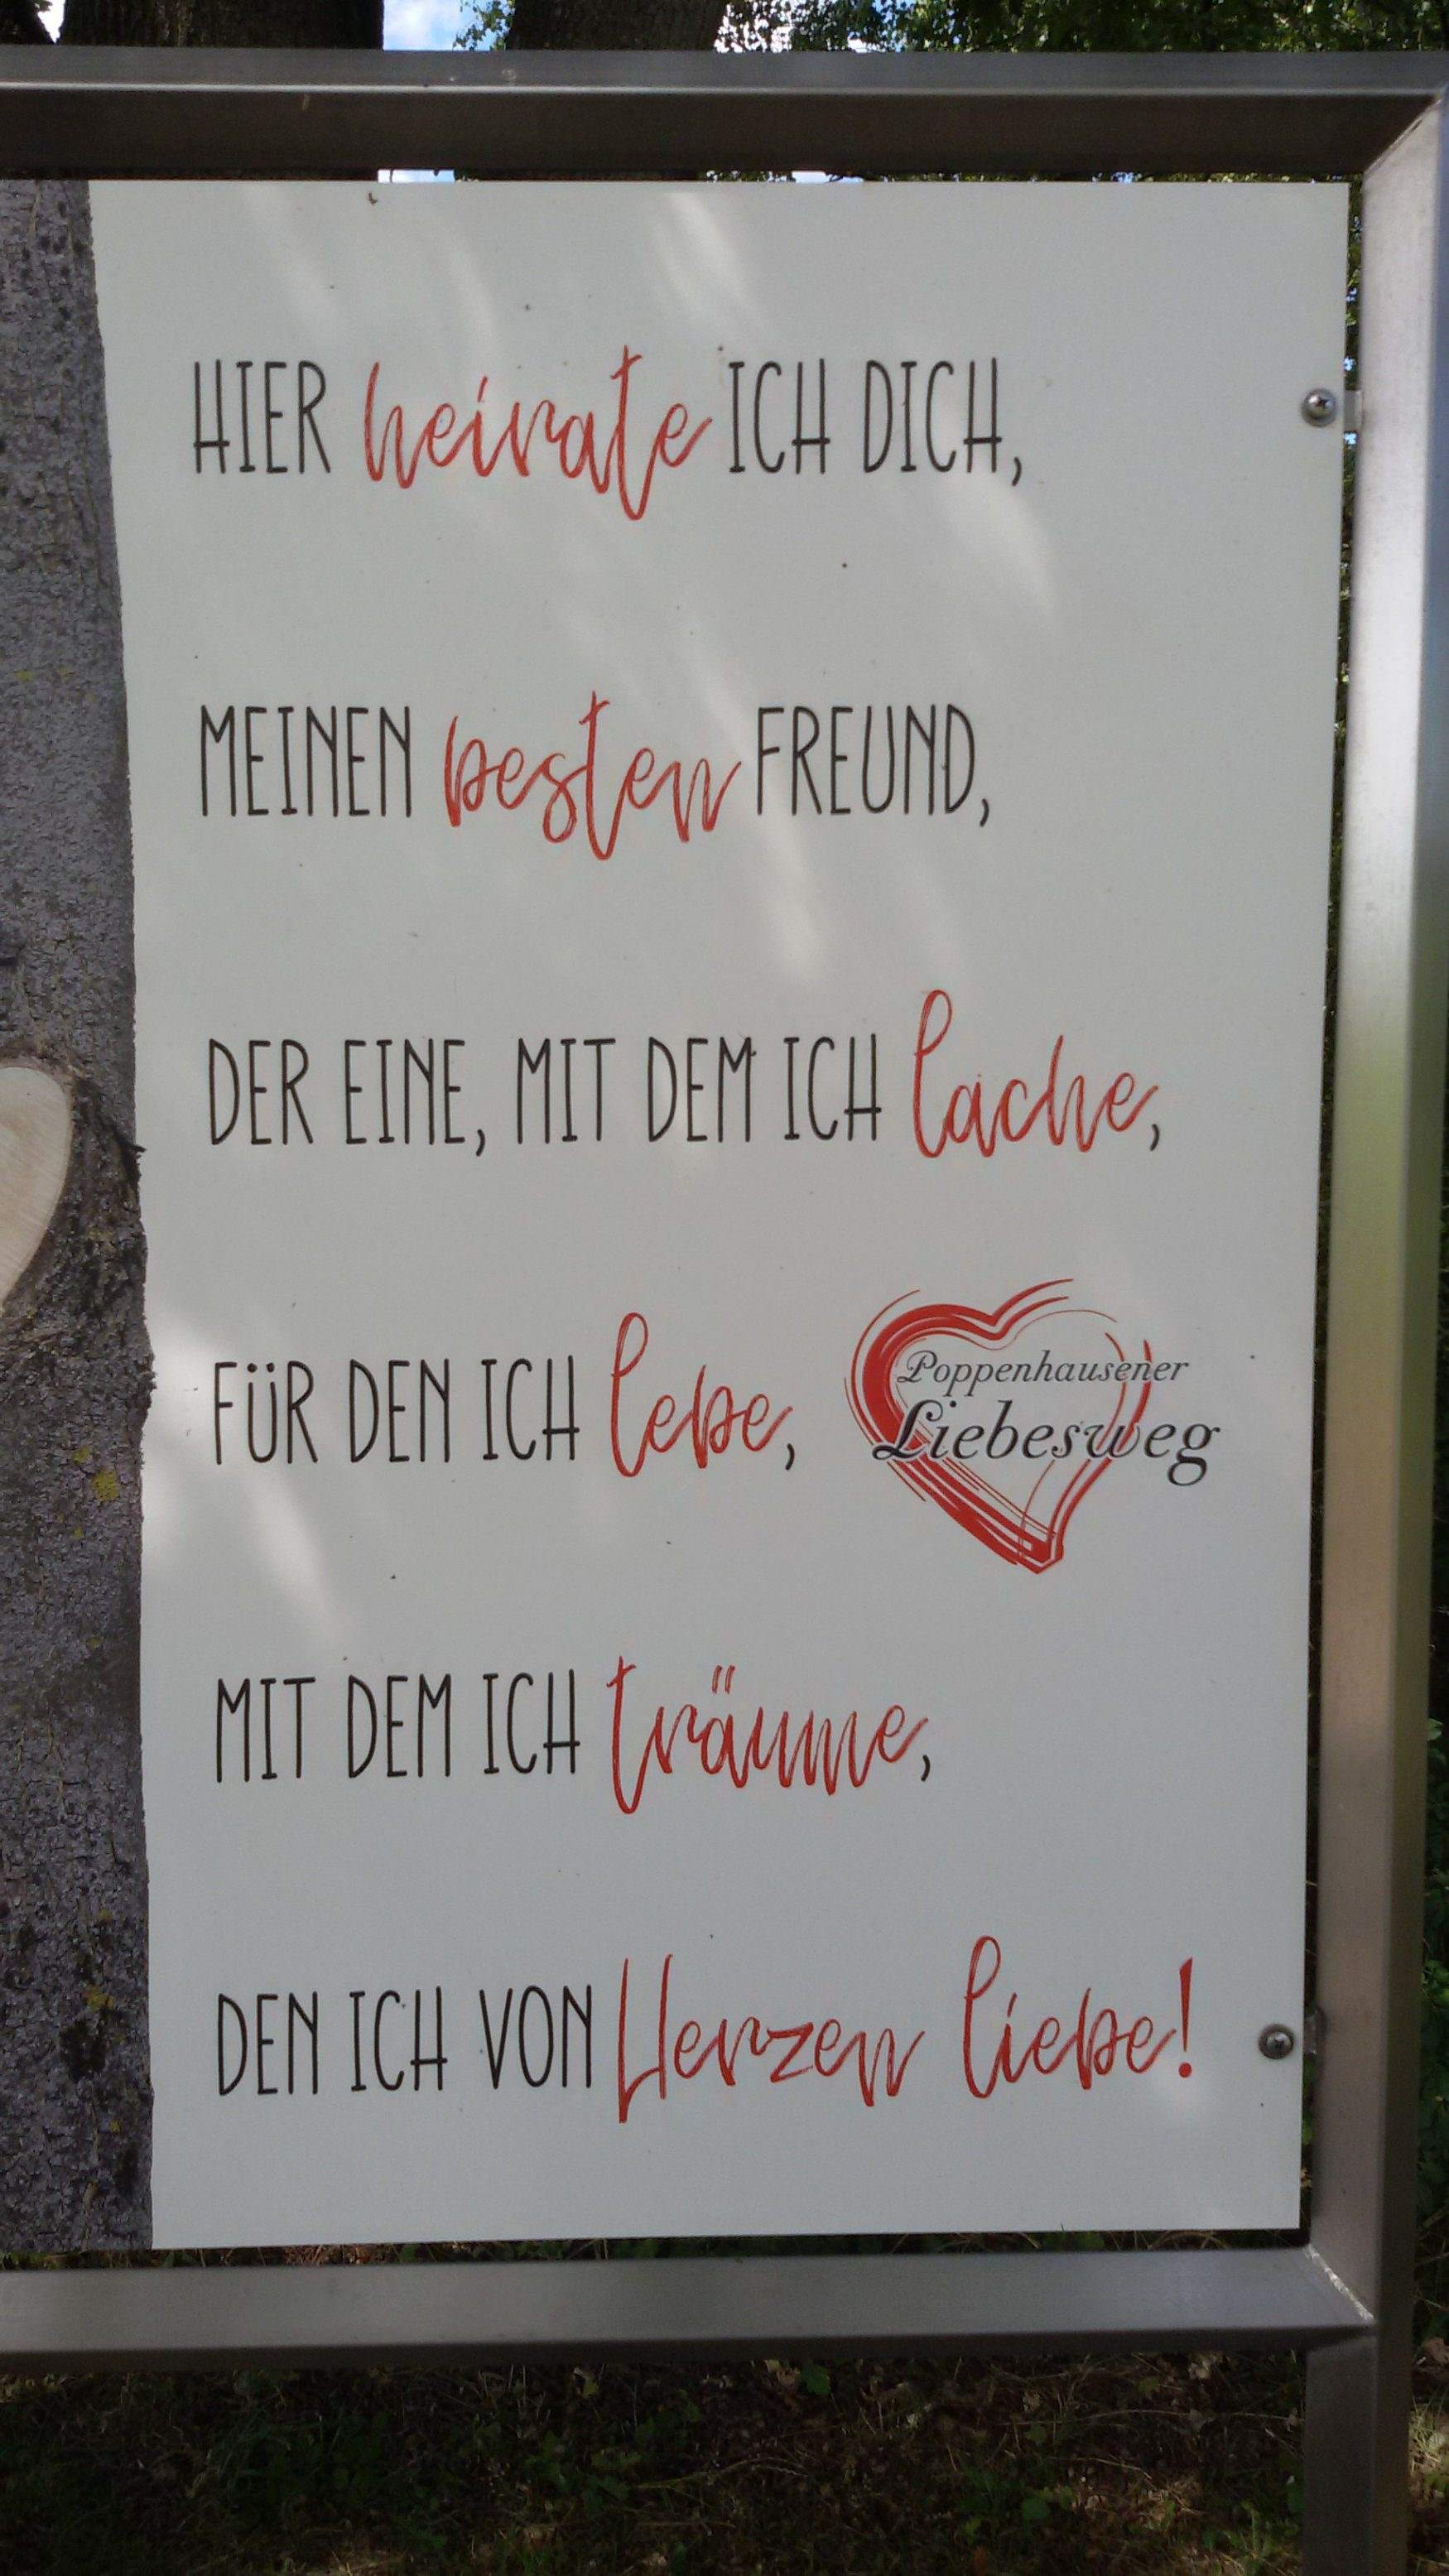 HIER heirate ICH DICH,
MEINEN besten FREUND,
DER EINE, MIT DEM ICH lache,
FÜR DEN ICH lebe,
Poppenhausener
Liebesweg
MIT DEM ICH träume,
DEN ICH VON Herzen liebe!